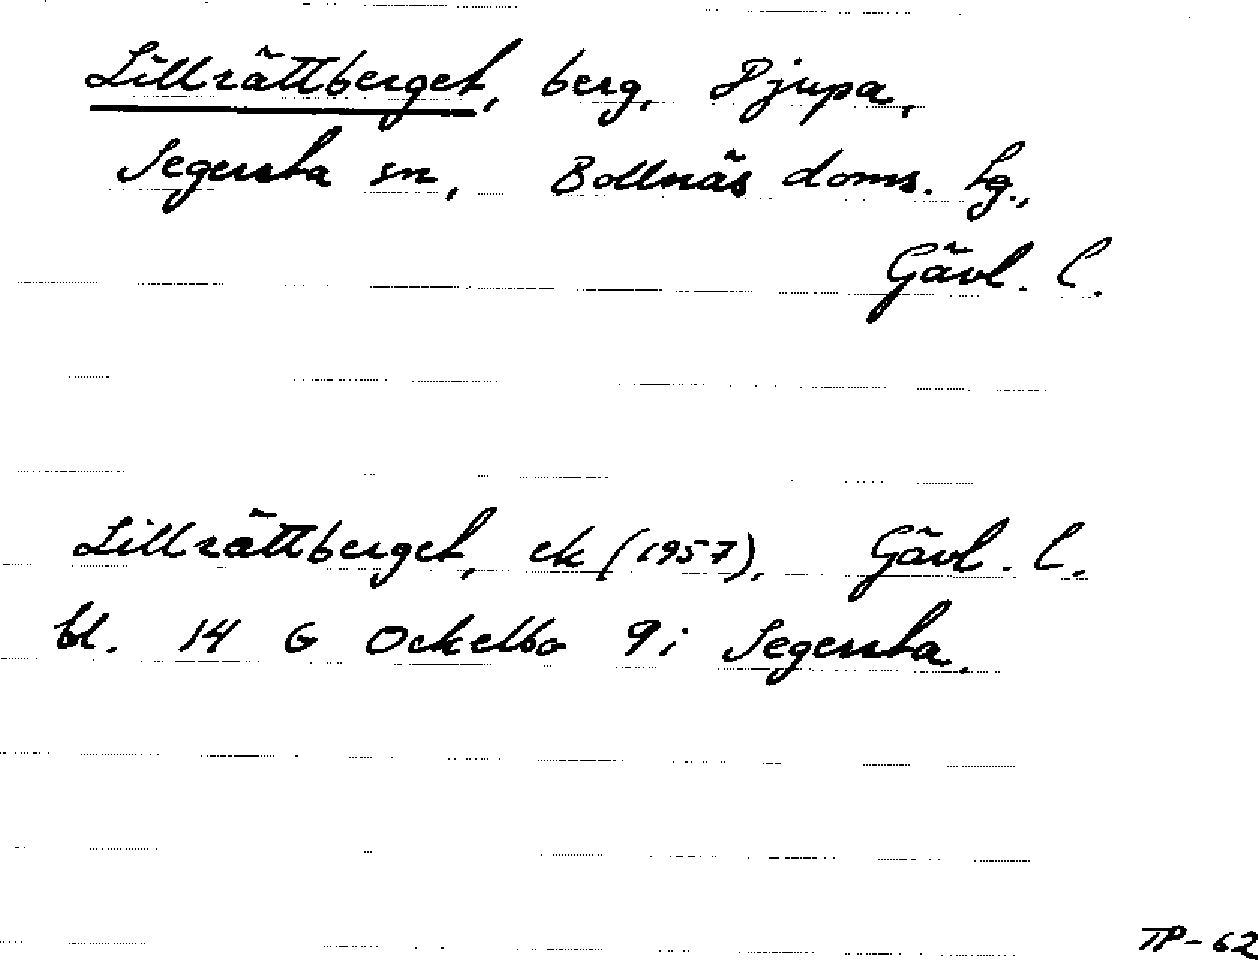 Lillrättberget, berg, Djupa,
Segersta sn, Bollnäs doms. hg.,
Gävl. l.
Lillrättberget, ek (1957), Gävl. l.
bl. 14 G Ockelbo 9i Segersta.
TP-62